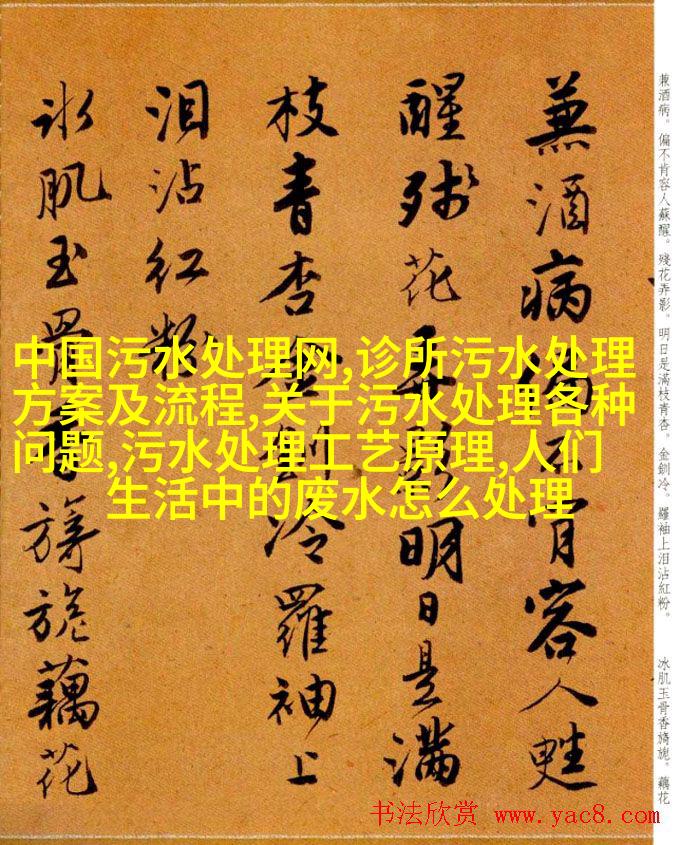 兼酒病。偏不肯容人蘇醒。殘花弄影。明日是滿枝青杏。金釧冷。羅袖上泪沾紅粉。
冰肌玉骨香旖旎。藕花
兼酒病偏不肯容人甦
醒殘花弄影明日是滿
枝青杏金釧冷羅袖上
泪沾紅粉
冰肌玉骨香旖旎藕花
中国污水处理网,诊所污水处理
方案及流程,关于污水处理各种
问题,污水处理工艺原理,人们
生活中的废水怎么处理
书法欣赏 www.yac8.com